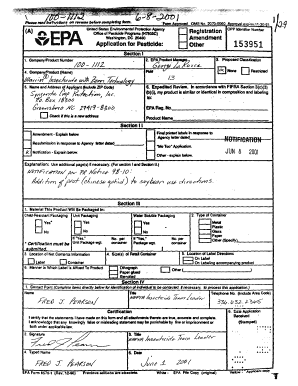 100-1112
6-8-2001
Please read instructions on reverse before completing form.
EPA
United States Environmental Protection Agency
Office of Pesticide Programs (H7505C)
Washington, DC 20460
Application for Pesticide:
Registration
Amendment
Other
OPP Identifier Number
153951
Section I
1. Company/Product Number
100-1112
2. EPA Product Manager
George LaRocca
3. Proposed Classification
None
Restricted
4. Company/Product (Name)
PM#
13
5. Name and Address of Applicant (Include ZIP Code)
Syngenta Crop Protection, Inc.
PO Box 18300
Greensboro NC 27419-8300
Check if this is a new address
6. Expedited Review. In accordance with FIFRA Section 3(c)(3)
(b)(i), my product is similar or identical in composition and labeling
to:
EPA Reg. No.
Product Name
Section II
Amendment - Explain below
Resubmission in response to Agency letter dated
Notification - Explain below
Final printed labels in response to
Agency letter dated
"Me Too" Application.
Other - explain below.
NOTIFICATION
JUN 8 2001
Explanation: Use additional page(s) if necessary. (For Section I and Section II.)
Notification per PR Notice 98-10:
Addition of pest (chinese aphid) to soybean use directions.
Section III
1. Material This Product Will Be Packaged In:
Child-Resistant Packaging
Yes*
No
* Certification must be
submitted
Unit Packaging
Yes
No
If "Yes,"
Unit Package wgt.
No. per
container
Water Soluble Packaging
Yes
No
If "Yes,"
Package wgt.
No. per
container
2. Type of Container
Metal
Plastic
Glass
Paper
Other (Specify)
3. Location of Net Contents Information
Label
Container
4. Size(s) of Retail Container
5. Location of Label Directions
On Label
On Labeling accompanying product
6. Manner in Which Label is Affixed to Product
Lithograph
Paper glued
Stenciled
Other
Section IV
1. Contact Point
Name
Fred J. Pearson
Title
NAFTA Insecticide Team Leader
Telephone No. (Include Area Code)
Certification
I certify that the statements I have made on this form and all attachments thereto are true, accurate and complete.
I acknowledge that any knowingly false or misleading statement may be punishable by fine or imprisonment or
both under applicable law.
6. Date Application
Received
(Stamped)
2. Signature
3. Title
NAFTA Insecticide Team Leader
4. Typed Name
Fred J. Pearson
5. Date
June 1 2001